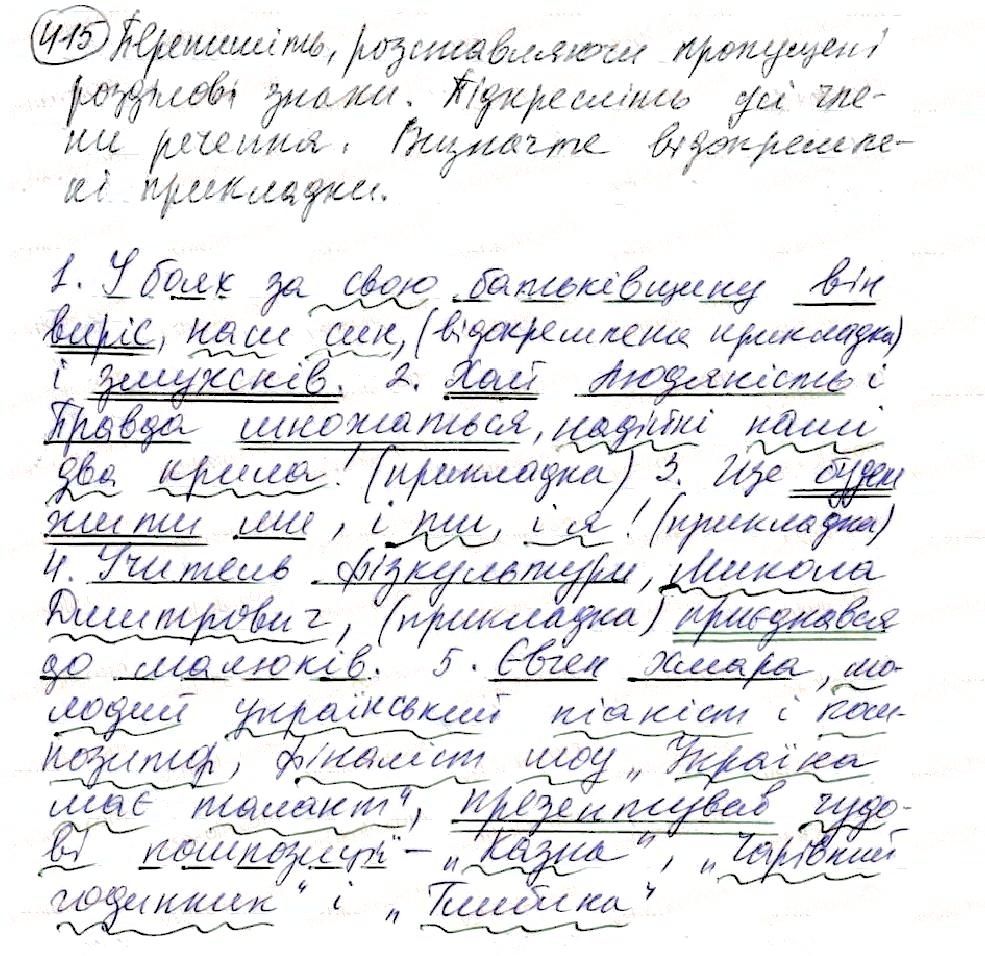 415 Перепишіть, розставляючи пропущені
розділові знаки. Підкресліть усі чле-
ни речення. Визначте відокремле-
ні прикладки.
1. У боях за свою батьківщину він
виріс, наш син, (відокремлена прикладка)
і змужнів. 2. Хай людяність і
Правда множаться, надійні наші
два крила! (прикладка) 3. Ще будем
жити ми, і ти, і я! (прикладка)
4. Учитель фізкультури, Микола
Дмитрович, (прикладка) приєднався
до малюків. 5. Євген Хмара, мо-
лодий український піаніст і ком-
позитор, фіналіст шоу „Україна
має талант", презентував чудо-
ві композиції – „Казка", „Чарівний
годинник" і „Глибина"